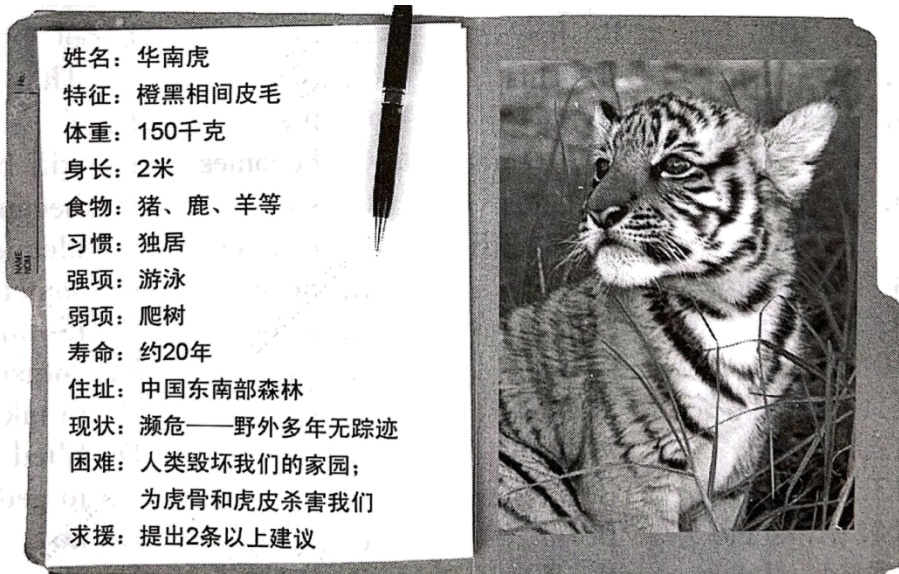 姓名：华南虎
特征：橙黑相间皮毛
体重：150千克
身长：2米
食物：猪、鹿、羊等
习惯：独居
强项：游泳
弱项：爬树
寿命：约20年
住址：中国东南部森林
现状：濒危——野外多年无踪迹
困难：人类毁坏我们的家园；
为虎骨和虎皮杀害我们
求援：提出2条以上建议
No.
NAME
NOM